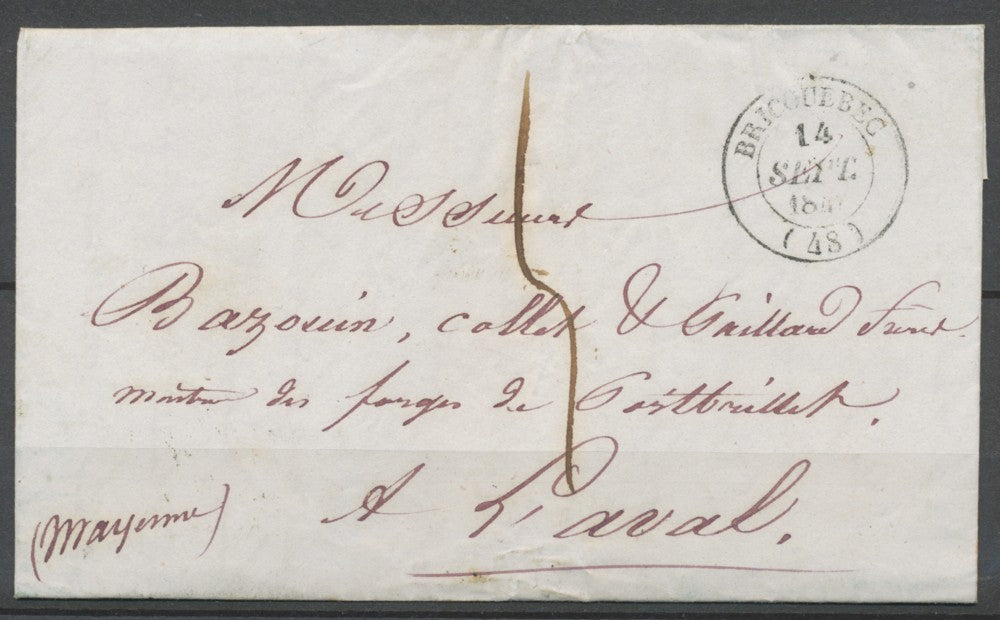 BRICQUEBEC
14
SEPT.
184
(48)
Messieurs
Bazouin, Collet & Paillard Frères
maitres des forges de Portbrillet.
A Laval.
(Mayenne)